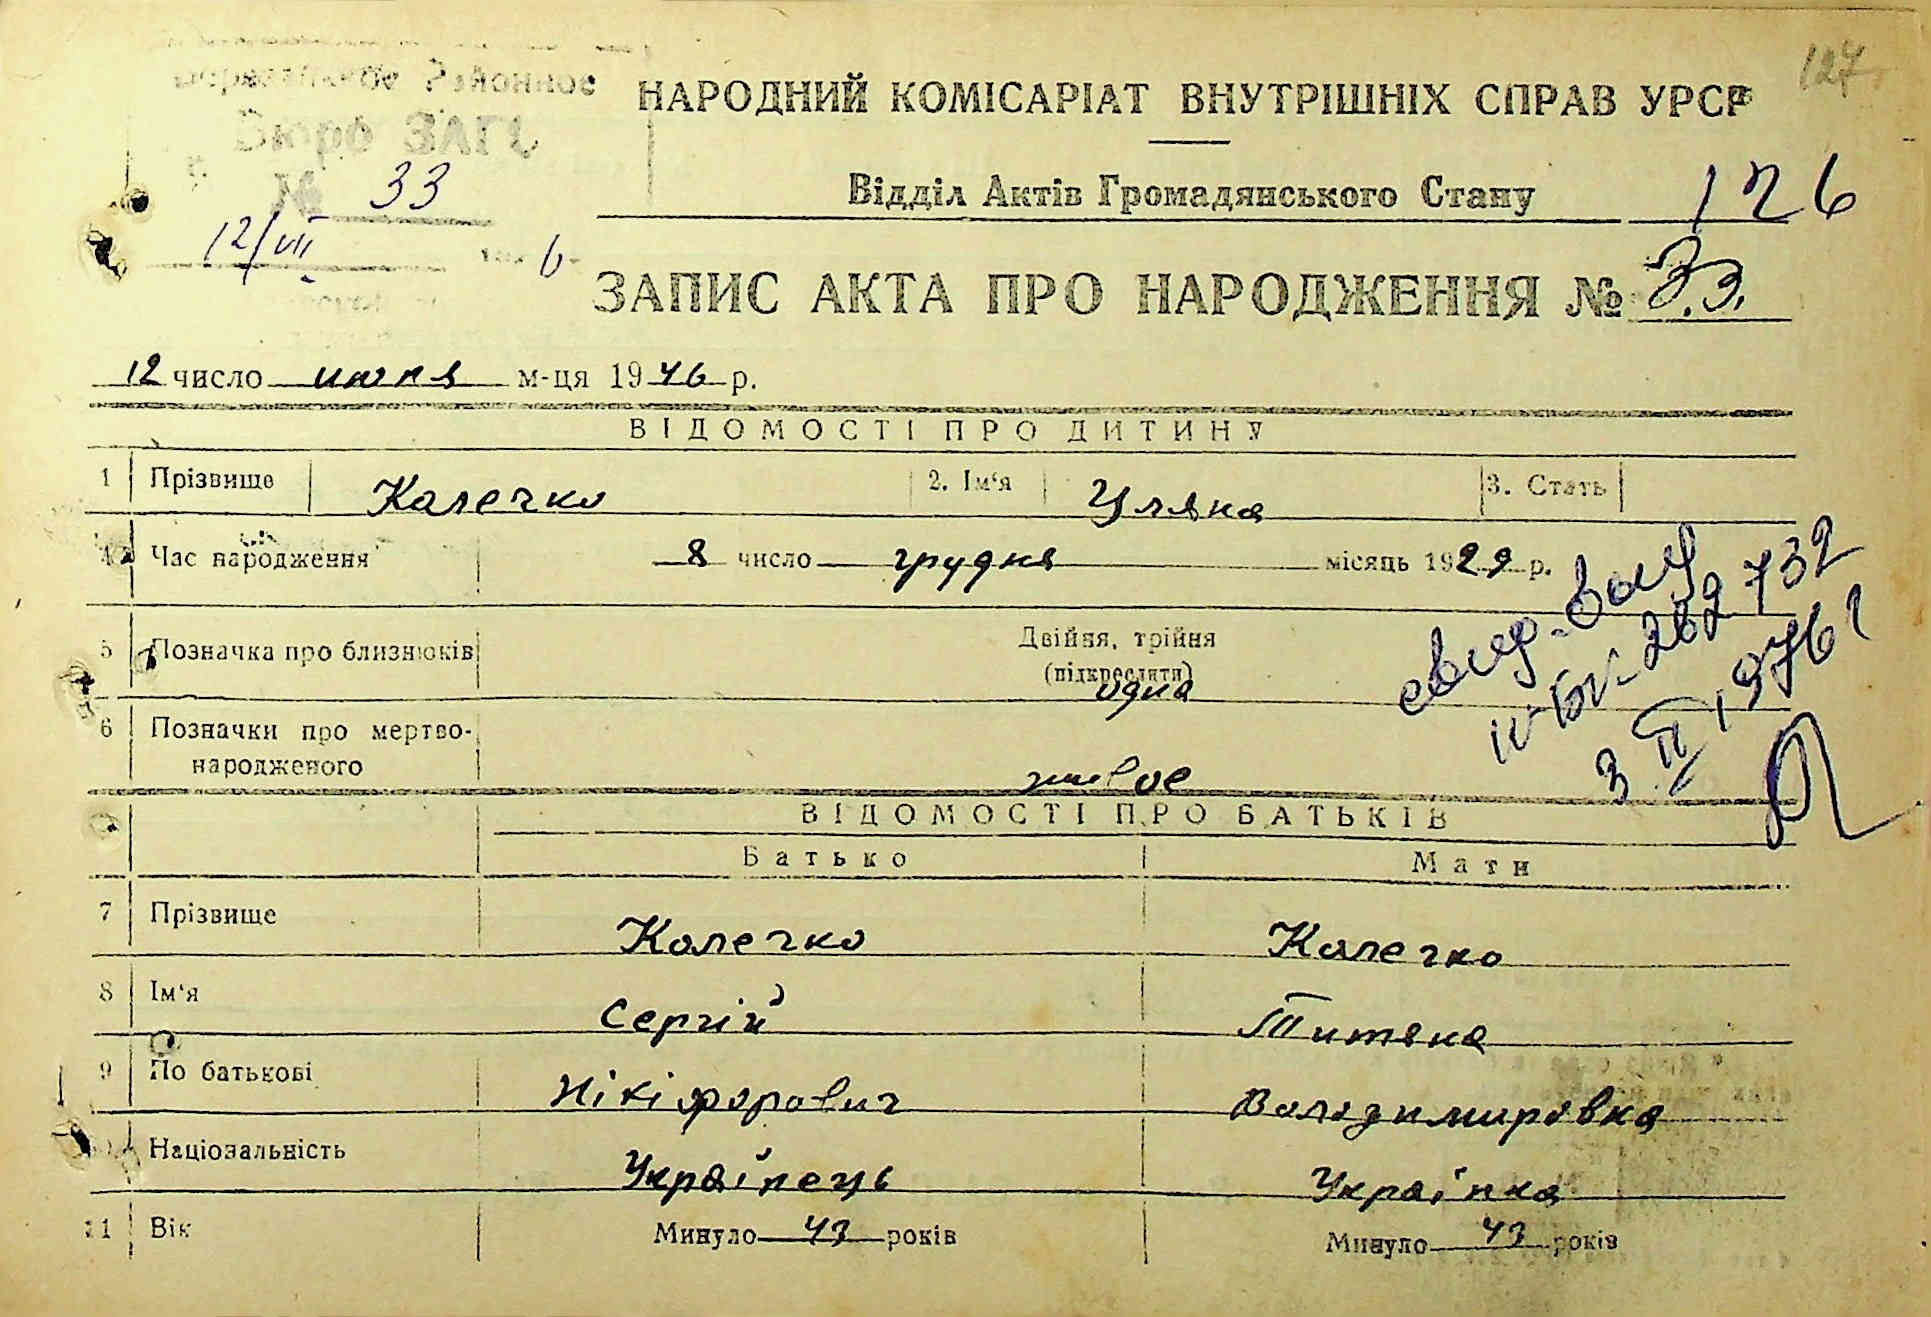 127
Районное
Бюро ЗАГС
№ 33
12/VII 6
НАРОДНИЙ КОМІСАРІАТ ВНУТРІШНІХ СПРАВ УРСР
Відділ Актів Громадянського Стану
126
ЗАПИС АКТА ПРО НАРОДЖЕННЯ № 33.
12 число июля м-ця 1946 р.
ВІДОМОСТІ ПРО ДИТИНУ
1 Прізвище Калечко 2. Ім'я Уляна 3. Стать
4 Час народження 8 число грудня місяць 1929 р.
5 Позначка про близнюків Двійня, трійня
(підкреслити)
одна
6 Позначки про мертво-
народженого живое
свид. выд
282732
3 II 1976 г
ВІДОМОСТІ ПРО БАТЬКІВ
Батько Мати
7 Прізвище Калечко Калечко
8 Ім'я Сергій Титяна
9 По батькові Нікіфорович Володимировна
10 Національність Українець Українка
11 Вік Минуло 43 років Минуло 43 років